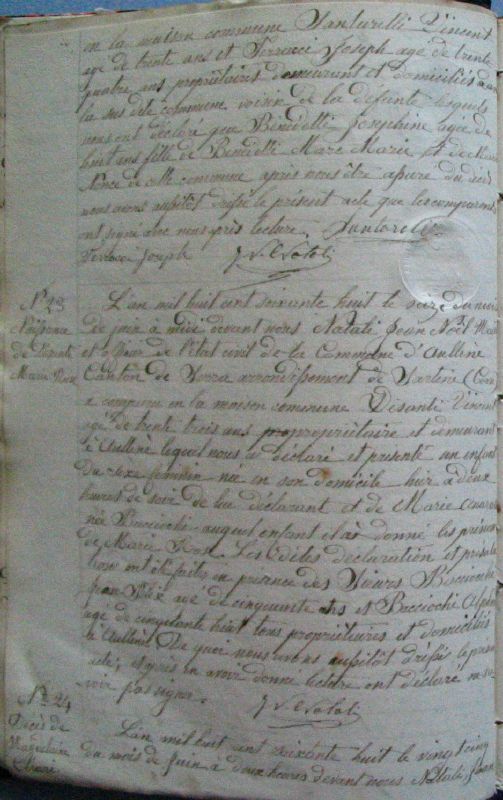 en la maison commune Santarelli Vincent
agé de trente ans et Serrocci Joseph agé de trente
quatre ans propriétaires demeurant et domiciliés dans
la sus dite commune voisin de la défunte lesquels
nous ont déclaré que Benedetti Josephine agée de
huit ans fille de Benedetti Marc Marie est décédée
de cette commune après nous être assuré du décès
nous avons aussitôt dressé le présent acte que les comparants
ont signé avec nous après lecture. Santarelli
Joseph J. N. Natali
N° 23
Naissance
de Desanti
Marie Rose
L'an mil huit cent soixante huit le seize du mois
de juin à midi devant nous Natali Jean Noël Maire
et officier de l'état civil de la Commune d'Aullène
Canton de Serra arrondissement de Sartène (Corse
a comparu en la maison commune Desanti Vincent
agé de trente trois ans propropriétaire et demeurant
à Aullène lequel nous a déclaré et présenté un enfant
du sexe féminin née en son domicile hier à deux
heures de soir de lui déclarant et de Marie
née Bacciochi auquel enfant il a donné les prénoms
de Marie Rose Les dites déclaration et présenta
tion ont été faites en présence des Sieurs Bacciochi
Jean Félix agé de cinquante ans et Bacciochi
agé de cinquante huit tous propriétaires et domiciliés
à Aullène De quoi nous avons aussitôt dressé le présent
acte, et après en avoir donné lecture ont déclaré ne sa
voir pas signer.
J. N. Natali
N° 24
Décès de
L'an mil huit cent soixante huit le vingt cinq
du mois de juin à deux heures devant nous Natali Jean